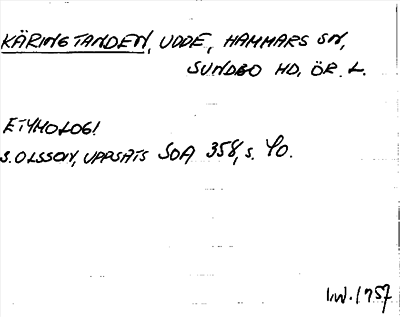 KÄRINGTANDEN, UDDE, HAMMARS SN,
SUNDBO HD, ÖR. L.
ETYMOLOGI
S. OLSSON, UPPSATS SOA 358, s. 40.
I.W. 1957